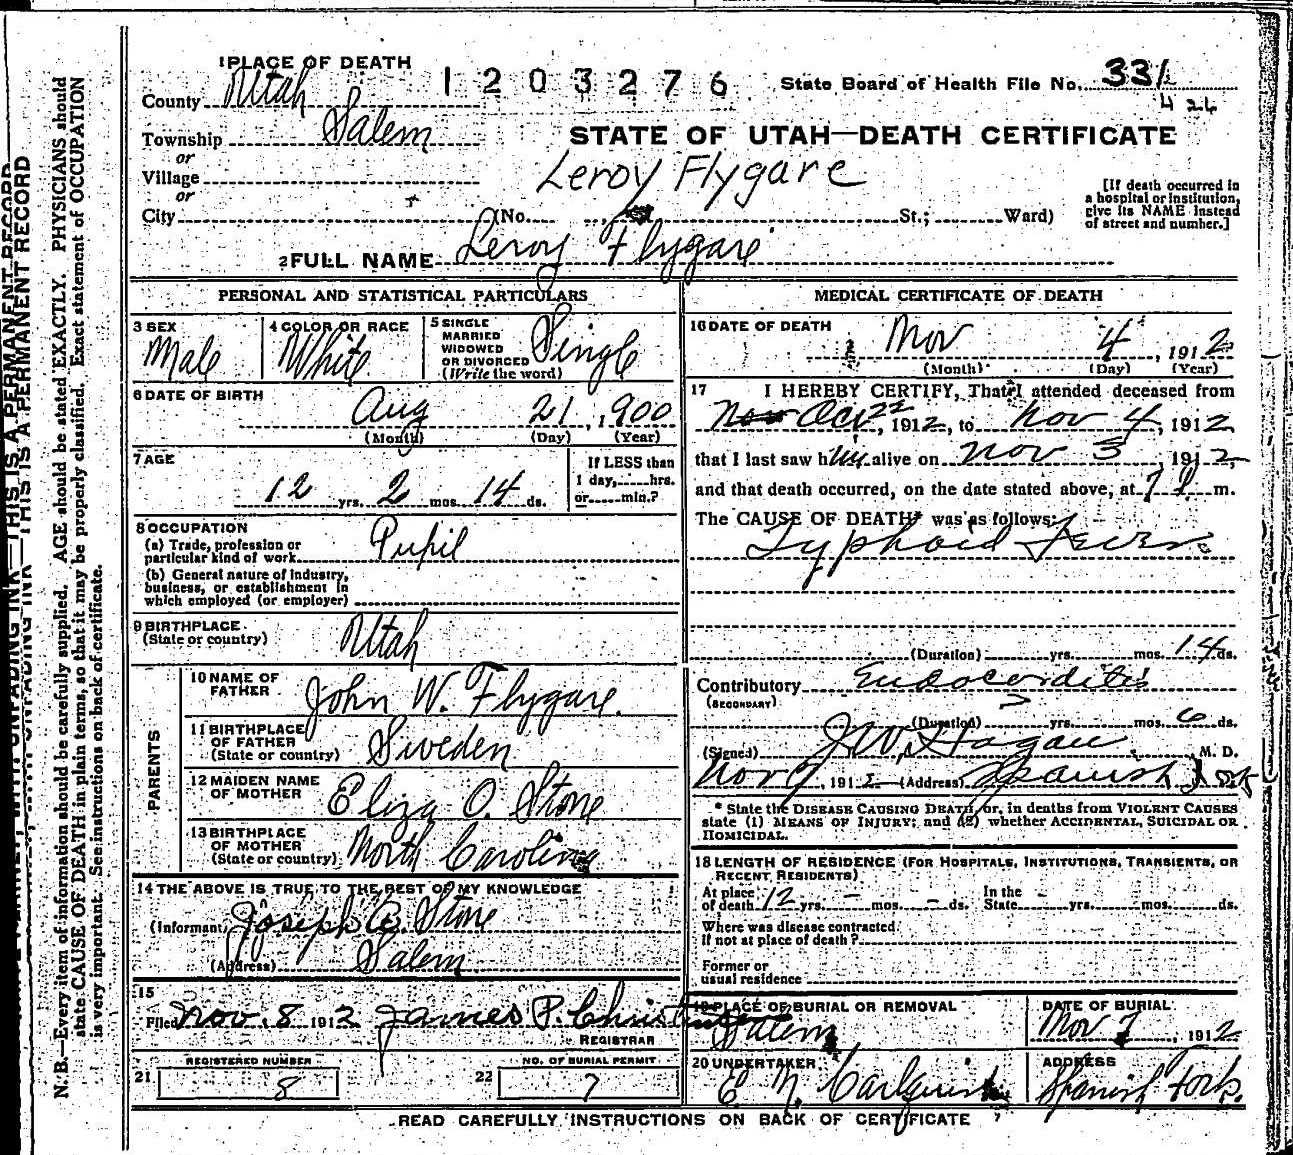 1 PLACE OF DEATH
1203276
State Board of Health File No. 331
426
County Utah
Township Salem
or
Village
or
City (No. St.; Ward)
STATE OF UTAH—DEATH CERTIFICATE
Leroy Flygare
[If death occurred in
a hospital or institution,
give its NAME instead
of street and number.]
2 FULL NAME Leroy Flygare
PERSONAL AND STATISTICAL PARTICULARS
3 SEX
Male
4 COLOR OR RACE
White
5 SINGLE
MARRIED
WIDOWED
OR DIVORCED
(Write the word)
Single
6 DATE OF BIRTH
Aug 21, 1900
(Month) (Day) (Year)
7 AGE
12 yrs. 2 mos. 14 ds.
If LESS than
1 day, hrs.
or min.?
8 OCCUPATION
(a) Trade, profession or
particular kind of work Pupil
(b) General nature of industry,
business, or establishment in
which employed (or employer)
9 BIRTHPLACE
(State or country)
Utah
PARENTS
10 NAME OF
FATHER
John W. Flygare.
11 BIRTHPLACE
OF FATHER
(State or country)
Sweden
12 MAIDEN NAME
OF MOTHER
Eliza O. Stone
13 BIRTHPLACE
OF MOTHER
(State or country)
North Carolina
14 THE ABOVE IS TRUE TO THE BEST OF MY KNOWLEDGE
(Informant) Joseph B. Stone
(Address) Salem
15
Filed Nov. 8 1912 James P. Christ
REGISTRAR
REGISTERED NUMBER
21 8
NO. OF BURIAL PERMIT
22 7
MEDICAL CERTIFICATE OF DEATH
16 DATE OF DEATH
Nov 4, 1912
(Month) (Day) (Year)
17 I HEREBY CERTIFY, That I attended deceased from
Nov Oct 22, 1912, to Nov 4, 1912,
that I last saw him alive on Nov 3, 1912,
and that death occurred, on the date stated above, at 7 m.
The CAUSE OF DEATH* was as follows:
Typhoid Fever
(Duration) yrs. mos. 14 ds.
Contributory Endocarditis
(SECONDARY)
(Duration) yrs. mos. 6 ds.
(Signed) J.W. Hagan M. D.
Nov 7, 1912 (Address) Spanish Fork
* State the DISEASE CAUSING DEATH, or, in deaths from VIOLENT CAUSES
state (1) MEANS OF INJURY; and (2) whether ACCIDENTAL, SUICIDAL OR
HOMICIDAL.
18 LENGTH OF RESIDENCE (FOR HOSPITALS, INSTITUTIONS, TRANSIENTS, OR
RECENT RESIDENTS)
At place
of death 12 yrs. - mos. - ds.
In the
State yrs. mos. ds.
Where was disease contracted
if not at place of death?
Former or
usual residence
19 PLACE OF BURIAL OR REMOVAL
Salem
DATE OF BURIAL
Nov 7, 1912
20 UNDERTAKER
ADDRESS
Spanish Fork.
READ CAREFULLY INSTRUCTIONS ON BACK OF CERTIFICATE
N. B.—Every item of information should be carefully supplied. AGE should be stated EXACTLY. PHYSICIANS should
state CAUSE OF DEATH in plain terms, so that it may be properly classified. Exact statement of OCCUPATION
is very important. See instructions on back of certificate.
WITH UNFADING INK—THIS IS A PERMANENT RECORD